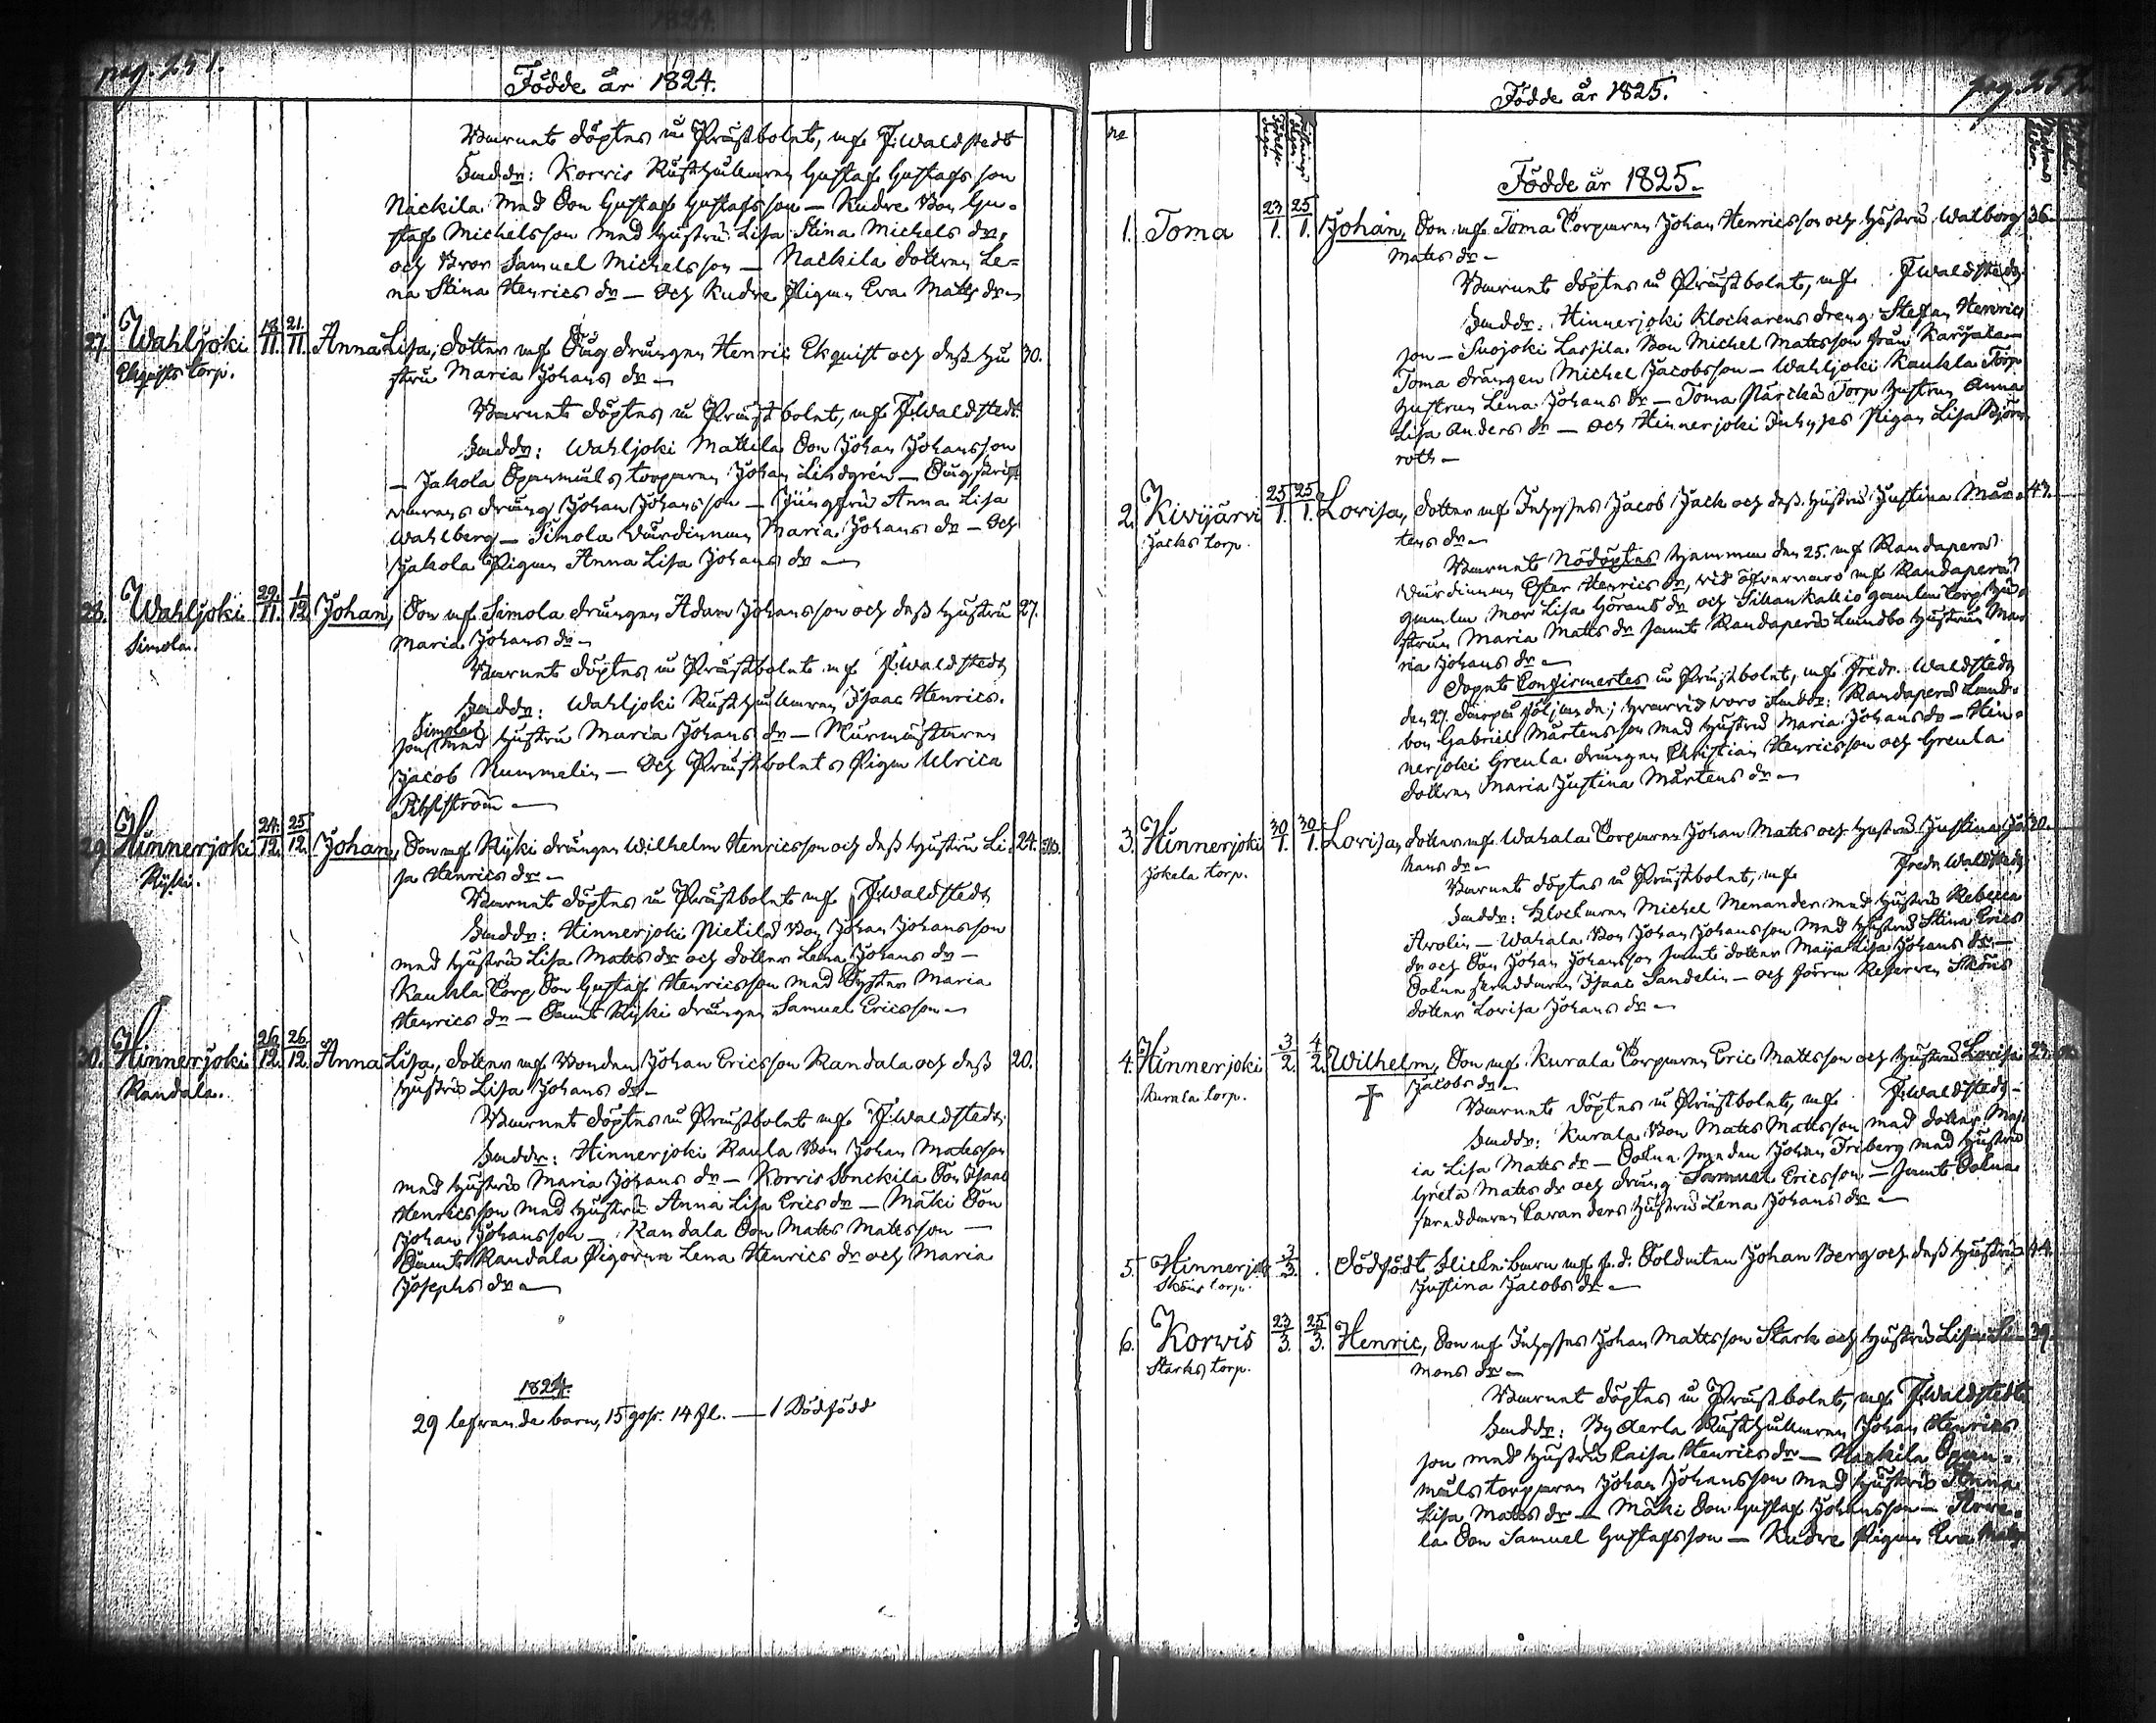 pag. 251.
Födde år 1824.
Barnet döptes i Prästbolet, af F. Waldstedt
Faddr: Korvis Rusthållaren Gustaf Gustafsson
Nackila med Son Gustaf Gustafsson — Kudre Bon Gu-
staf Michelsson med Hustru Lisa Stina Michels dr,
och Bror Samuel Michelsson — Nackila dottren Le-
na Stina Henrics dr — Och Kudre Pigan Eva Matts dr —
27. Wahljoki 18/11. 21./11. Anna Lisa, dotter af Sug drängen Henric Ekquist och dess Hu 30.
Ekquists torp. stru Maria Johans dr —
Barnet döptes i Prästbolet, af F. Waldstedt.
Faddr: Wahljoki Mattila Son Johan Johansson
— Jakola Spanmåls torparen Johan Lindgrén — Sugskrif-
varens dräng Johan Johansson — Jungfru Anna Lisa
Wahlberg — Simola Värdinnan Maria Johans dr — Och
Jakola Pigan Anna Lisa Johans dr —
28. Wahljoki 29./11. 1/12 Johan, Son af Simola drängen Adam Johansson och dess Hustru 27.
Simola. Maria Johans dr —
Barnet döptes i Prästbolet af F. Waldstedt
Faddr: Wahljoki Rusthållaren Isaac Henrics-
Simola
son med Hustru Maria Johans dr — Murmästaren
Jacob Nummelin — Och Prästbolets Pigan Ulrica
29. Hinnerjoki 24./12. 25/12. Johan, Son af Ryski drängen Wilhelm Henricsson och dess Hustru Li- 24.
Ryski. sa Henrics dr —
Barnet döptes i Prästbolet af F. Waldstedt
Faddr: Hinnerjoki Pietilä Bon Johan Johansson
med Hustru Lisa Matts dr och dotter Lena Johans dr —
Kaukla Torp Son Gustaf Henricsson med Syster Maria
Henrics dr — Samt Ryski drängen Samuel Ericsson —
30. Hinnerjoki 26./12. 26./12. Anna Lisa, dotter af Bonden Johan Ericsson Randala och dess 20.
Randala. Hustru Lisa Johans dr —
Barnet döptes i Prästbolet af F. Waldstedt.
Faddr: Hinnerjoki Raula Bon Johan Matsson
med Hustru Maria Johans dr — Korvis Sonckila Son Isaac
Henricsson med Hustru Anna Lisa Erics dr — Mäki Son
Johan Johansson — Randala Son Matts Mattsson —
Samt Randala Pigorna Lena Henrics dr och Maria
Josephs dr —
1824.
29 lefvande barn, 15 goss. 14 fl. — 1 Dödfödd
pag. 252.
Födde år 1825.
no
Födde år 1825.
1. Toma 23/1. 25/1. Johan, Son af Toma Torparen Johan Henricsson och Hustru Walborg 36.
Mats dr —
Barnet döptes i Prästbolet, af F. Waldstedt
Faddr: Hinnerjoki Klockarens dreng Stefan Henrics
son — Suojoki Lassila Bon Michel Matsson från Karjala —
Toma drängen Michel Jacobsson — Wahljoki Kaukla Torp
Hustrun Lena Johans dr — Toma Närckä Torp Hustrun Anna
Lisa Anders dr — och Hinnerjoki Inhyses Pigan Lisa Björn
roth —
2. Kivijärvi 25/1. 25/1. Lovisa, dotter af Inhyses Jacob Jack och dess Hustru Justina Mår- 43.
Jacks torp. tens dr —
Barnet Nöddöptes hemma den 25. af Randaperä
Värdinnan Ester Henrics dr, vid öfvervaro af Randaperä
gamla Mor Lisa Görans dr och Sillankallio gamla torp Hu-
strun Maria Matts dr samt Randaperä Lundbo Hustrun Ma-
ria Johans dr —
Dopet Confirmertes i Prästbolet, af Fredr. Waldstedt
den 27. derpå följande; hvarvid voro Faddr: Randaperä Land-
bon Gabriel Mårtensson med Hustru Maria Johans dr — Hin-
nerjoki Greula drängen Christian Henricsson och Greula
dottren Maria Justina Mårtens dr —
3. Hinnerjoki 30/1. 30/1. Lovisa, dotter af Wahala Torparen Johan Mats och Hustru Justina Jo- 30.
Jokela torp. hans dr —
Barnet döptes i Prästbolet, af Fredr. Waldstedt
Faddr: Klockaren Michel Menander med Hustru Rebecca
Arolin — Wahala Bon Johan Johansson med Hustru Stina Erics
dr och Son Johan Johansson samt dotter Maija Lisa Johans dr —
Sokne skreddaren Isaac Sandelin — och förra Reserven Sköns
dotter Lovisa Johans dr —
4. Hinnerjoki 3/2. 4/2. Wilhelm, Son af Kurala Torparen Eric Mattsson och Hustru Lovisa 23.
Kurala torp. † Jacobs dr —
Barnet döptes i Prästbolet, af F. Waldstedt —
Faddr: Kurala Bon Mats Mattsson med dotter Ma-
ia Lisa Mats dr — Sokne smeden Johan Friberg med Hustru
Greta Mats dr och dräng Samuel Ericsson — samt Sokne
skreddaren Cavanders Hustru Lena Johans dr —
5. Hinnerjoki 3/3. . Dödfödt Flicke barn af f. d. Soldaten Johan Berg och dess Hustru 44.
Sköns torp. Justina Jacobs dr —
6. Korwis 23/3. 25/3. Henric, Son af Inhyses Johan Mattsson Stark och Hustru Lisa Si- 39.
Starks torp. mons dr —
Barnet döptes i Prästbolet, af F. Waldstedt
Faddr: By Aerla Rusthållaren Johan Henrics
son med Hustru Caisa Henrics dr — Nackila Span-
måls torparen Johan Johansson med Hustru Anna
Lisa Matts dr — Mäki Son Gustaf Johansson —
la Son Samuel Gustafsson — Kudre Pigan Eva Matts